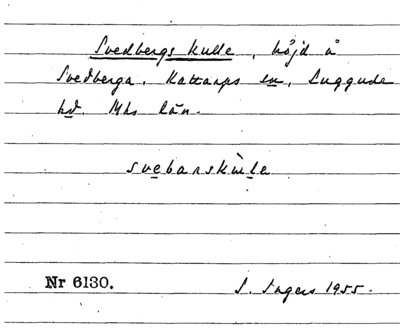 Svedbergs kulle, höjd å
Svedberga, Kattarps sn, Luggude
hd. Mhs län.
svebarskùle
Nr 6130.
S. Ingers 1955.